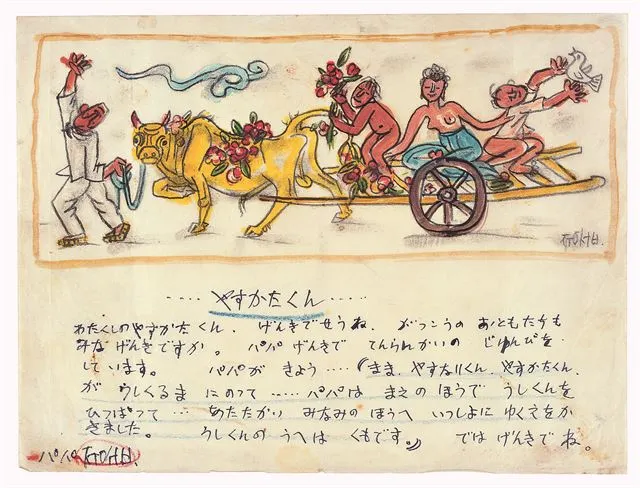 ‥‥やすかたくん‥‥
わたくしの やすかたくん、げんきでせうね、がつこうの おともたちも
みな げんきですか。パパ げんきで てんらんかいの じゅんびを
しています。パパが きょう‥‥(まま、やすなりくん、やすかたくん、
が うしくるま にのって‥‥パパは まえのほうで うしくんを
ひっぱって…あたたかい みなみのほうへ いつしよに ゆくえをか
きました。うしくんの うへは くもです。) では げんきで ね。
パパ